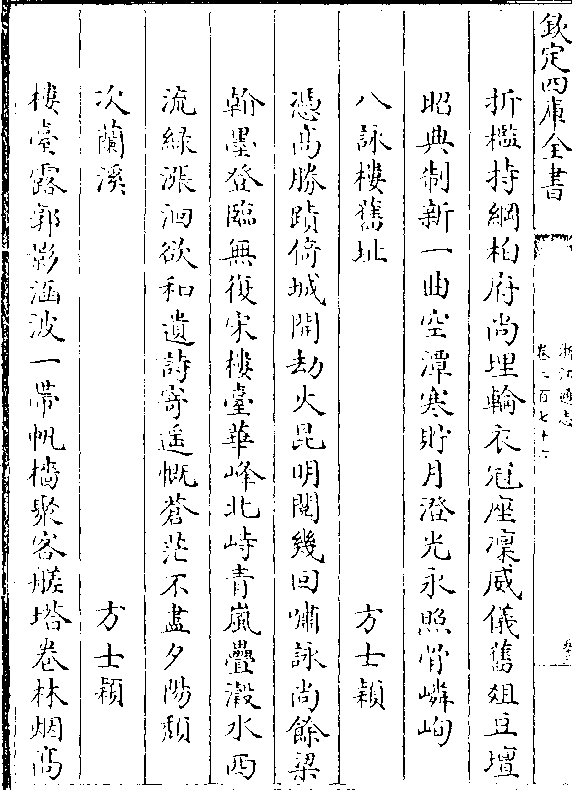 欽定四庫全書
浙江通志
卷二百七十六
折檻持綱柏府尚埋輪衣冠座凜威儀舊俎豆壇
昭典制新一曲空潭寒貯月澄光永照骨嶙峋
八詠樓舊址　方士穎
憑高勝蹟倚城開劫火昆明閱幾回嘯詠尚餘梁
翰墨登臨無復宋樓臺華峰北峙青嵐疊瀫水西
流綠漲洄欲和遺詩寄遥慨蒼茫不盡夕陽頹
次蘭溪　方士穎
樓臺露郭影涵波一帶帆檣聚客艖塔卷林烟高